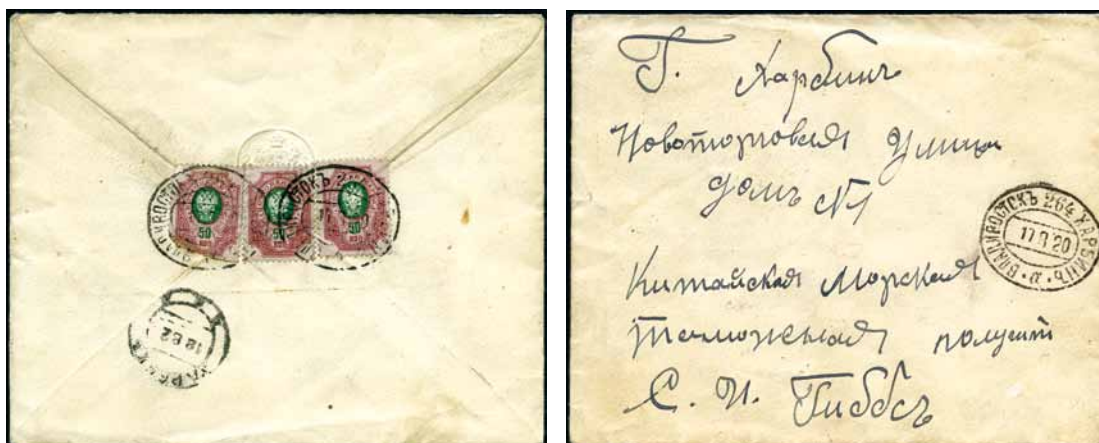 50
КОП
50
50
КОП
ХАРБИНЪ
Г. Харбинъ
Новоторговая Улица
домъ №1
Китайская Морская
Таможенная получит
С. И. Гиббсъ
ВЛАДИВОСТОКЪ 264 ХАРБИНЪ
17 8 20
а